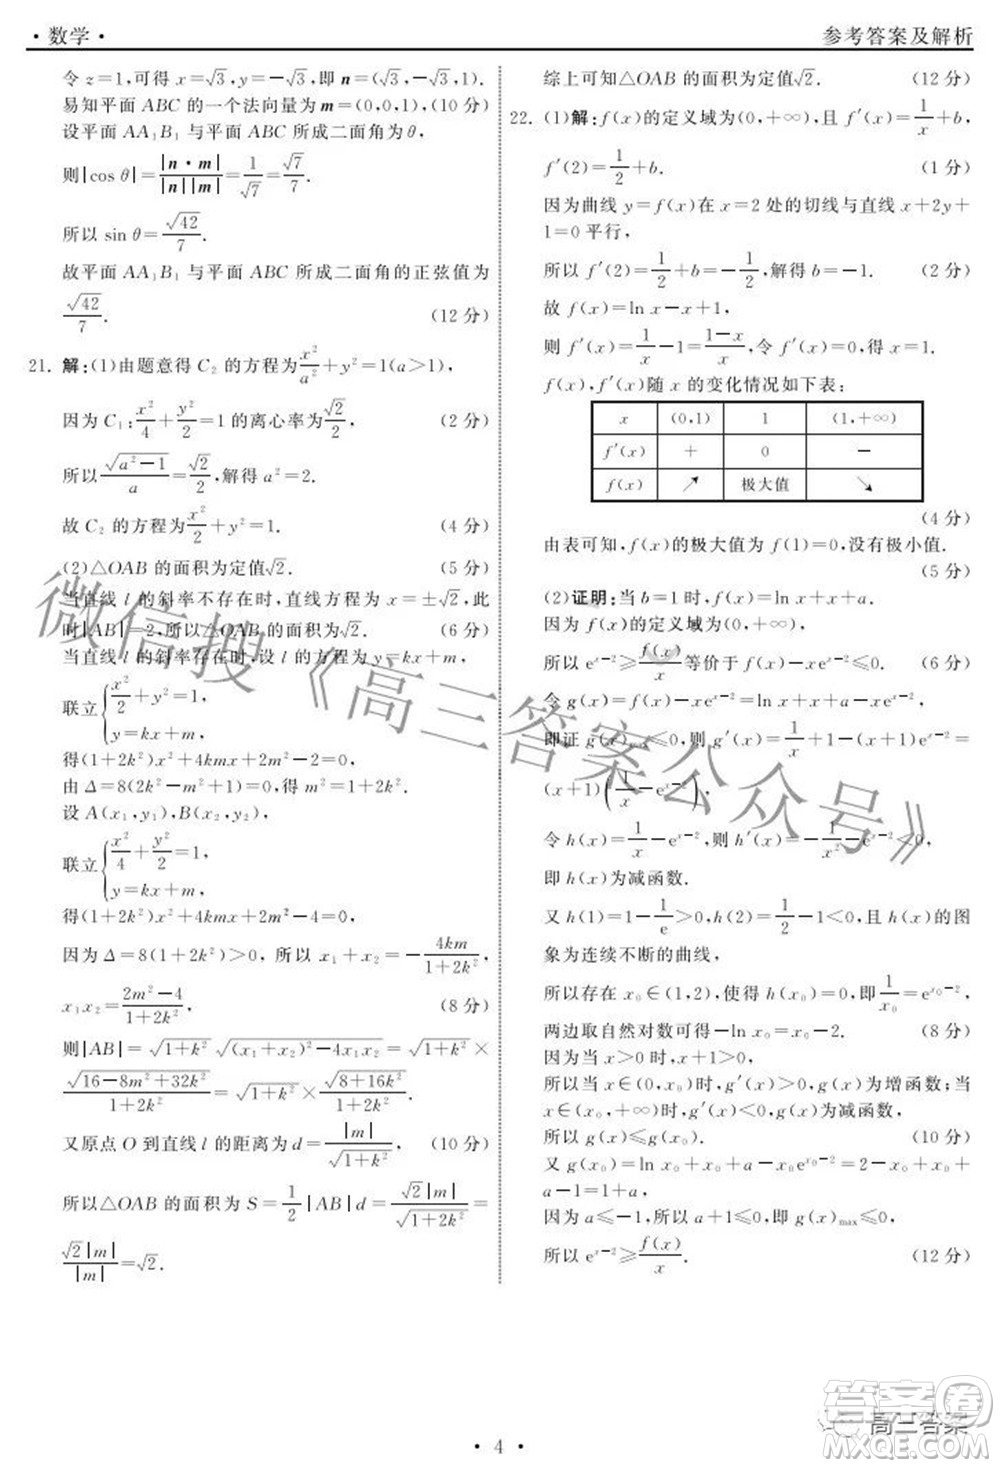 ·数学·
参考答案及解析
令 z=1,可得 x=√3,y=−√3,即 n=(√3,−√3,1).
易知平面 ABC 的一个法向量为 m=(0,0,1),(10 分)
设平面 AA₁B₁ 与平面 ABC 所成二面角为 θ,
则|cos θ|=|n·m|/(|n||m|)=1/√7=√7/7.
所以 sin θ=√42/7.
故平面 AA₁B₁ 与平面 ABC 所成二面角的正弦值为
√42/7. (12 分)
21. 解:(1)由题意得 C₂ 的方程为x²/a²+y²=1(a>1),
因为 C₁:x²/4+y²/2=1 的离心率为√2/2, (2 分)
所以√(a²−1)/a=√2/2,解得 a²=2.
故 C₂ 的方程为x²/2+y²=1. (4 分)
(2)△OAB 的面积为定值√2. (5 分)
当直线 l 的斜率不存在时,直线方程为 x=±√2,此
时|AB|=2,所以△OAB 的面积为√2. (6 分)
当直线 l 的斜率存在时,设 l 的方程为 y=kx+m,
联立{x²/2+y²=1,
y=kx+m,
得(1+2k²)x²+4kmx+2m²−2=0,
由 Δ=8(2k²−m²+1)=0 得 m²=1+2k².
设 A(x₁,y₁),B(x₂,y₂),
联立{x²/4+y²/2=1,
y=kx+m,
得(1+2k²)x²+4kmx+2m²−4=0,
因为 Δ=8(1+2k²)>0, 所以 x₁+x₂=−4km/(1+2k²),
x₁x₂=(2m²−4)/(1+2k²), (8 分)
则|AB|=√(1+k²) √((x₁+x₂)²−4x₁x₂)=√(1+k²)×
√(16−8m²+32k²)/(1+2k²)=√(1+k²)×√(8+16k²)/(1+2k²).
又原点 O 到直线 l 的距离为 d=|m|/√(1+k²), (10 分)
所以△OAB 的面积为 S=1/2|AB|d=√2|m|/√(1+2k²)=
√2|m|/|m|=√2.
综上可知△OAB 的面积为定值√2. (12 分)
22. (1)解:f(x)的定义域为(0,+∞),且 f′(x)=1/x+b,
f′(2)=1/2+b. (1 分)
因为曲线 y=f(x)在 x=2 处的切线与直线 x+2y+
1=0 平行,
所以 f′(2)=1/2+b=−1/2,解得 b=−1. (2 分)
故 f(x)=ln x−x+1,
则 f′(x)=1/x−1=(1−x)/x,令 f′(x)=0,得 x=1.
f(x),f′(x)随 x 的变化情况如下表:
x (0,1) 1 (1,+∞)
f′(x) + 0 −
f(x) ↗ 极大值 ↘
(4 分)
由表可知,f(x)的极大值为 f(1)=0,没有极小值.
(5 分)
(2)证明:当 b=1 时,f(x)=ln x+x+a.
因为 f(x)的定义域为(0,+∞),
所以 eˣ⁻²≥f(x)/x等价于 f(x)−xeˣ⁻²≤0. (6 分)
令 g(x)=f(x)−xeˣ⁻²=ln x+x+a−xeˣ⁻²,
即证 g(x)max≤0,则 g′(x)=1/x+1−(x+1)eˣ⁻²=
(x+1)(1/x−eˣ⁻²).
令 h(x)=1/x−eˣ⁻²,则 h′(x)=−1/x²−eˣ⁻²<0,
即 h(x)为减函数.
又 h(1)=1−1/e>0,h(2)=1/2−1<0,且 h(x)的图
象为连续不断的曲线,
所以存在 x₀∈(1,2),使得 h(x₀)=0,即1/x₀=e^(x₀−2),
两边取自然对数可得−ln x₀=x₀−2. (8 分)
因为当 x>0 时,x+1>0,
所以当 x∈(0,x₀)时,g′(x)>0,g(x)为增函数;当
x∈(x₀,+∞)时,g′(x)<0,g(x)为减函数,
所以 g(x)≤g(x₀). (10 分)
又 g(x₀)=ln x₀+x₀+a−x₀e^(x₀−2)=2+
a−1=a+1,
因为 a≤−1,所以 a+1≤0,即 g(x)max≤0,
所以 eˣ⁻²≥f(x)/x. (12 分)
· 4 ·
微信搜《高三答案公众号》
高三答案
答案卷
MXQE.COM